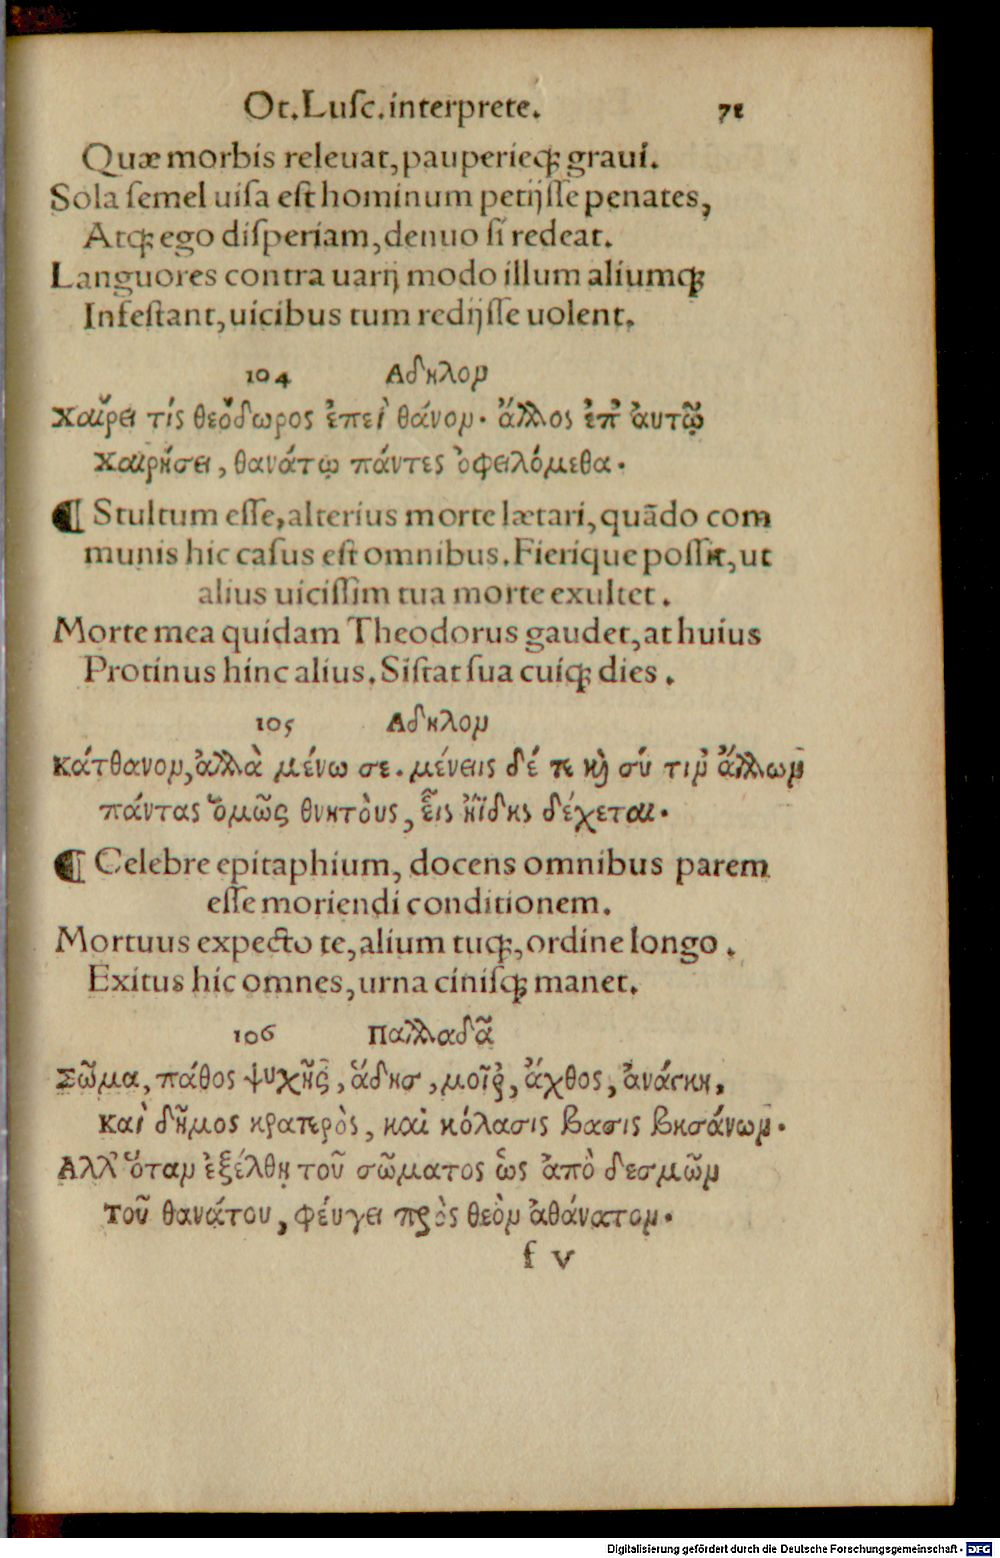 Ot. Lusc. interprete. 71
Quæ morbis releuat, pauperieq; graui.
Sola semel uisa est hominum petijsse penates,
Atq; ego disperiam, denuo si redeat.
Languores contra uarij modo illum aliumq;
Infestant, uicibus tum redijsse uolent.
104 Αδηλον
Χαίρει τίς θεόδωρος ἐπεὶ θάνον· ἄλλος ἐπ' ἀυτῷ
Χαιρήσει, θανάτῳ πάντες ὀφειλόμεθα.
¶ Stultum esse, alterius morte lætari, quãdo com
munis hic casus est omnibus. Fierique possit, ut
alius uicissim tua morte exultet.
Morte mea quidam Theodorus gaudet, at huius
Protinus hinc alius. Sistat sua cuiq; dies.
105 Αδηλον
Κάτθανον, ἀλλὰ μένω σε. μένεις δέ τι καὶ σύ τιν ἄλλων
πάντας ὁμῶς θνητοὺς, εἷς ἀΐδης δέχεται.
¶ Celebre epitaphium, docens omnibus parem
esse moriendi conditionem.
Mortuus expecto te, alium tuq;, ordine longo.
Exitus hic omnes, urna cinisq; manet.
106 Παλλαδᾶ
Σῶμα, πάθος ψυχῆς, ἅδησ, μοῖρ, ἄχθος, ἀνάγκη,
Καὶ δῆμος κρατερὸς, καὶ κόλασις βασις βησάνων.
Αλλ' ὅταν ἐξέλθῃ τοῦ σῶματος ὡς ἀπὸ δεσμῶν
Τοῦ θανάτου, φέυγει πρὸς θεὸν ἀθάνατον.
f v
Digitalisierung gefördert durch die Deutsche Forschungsgemeinschaft - DFG